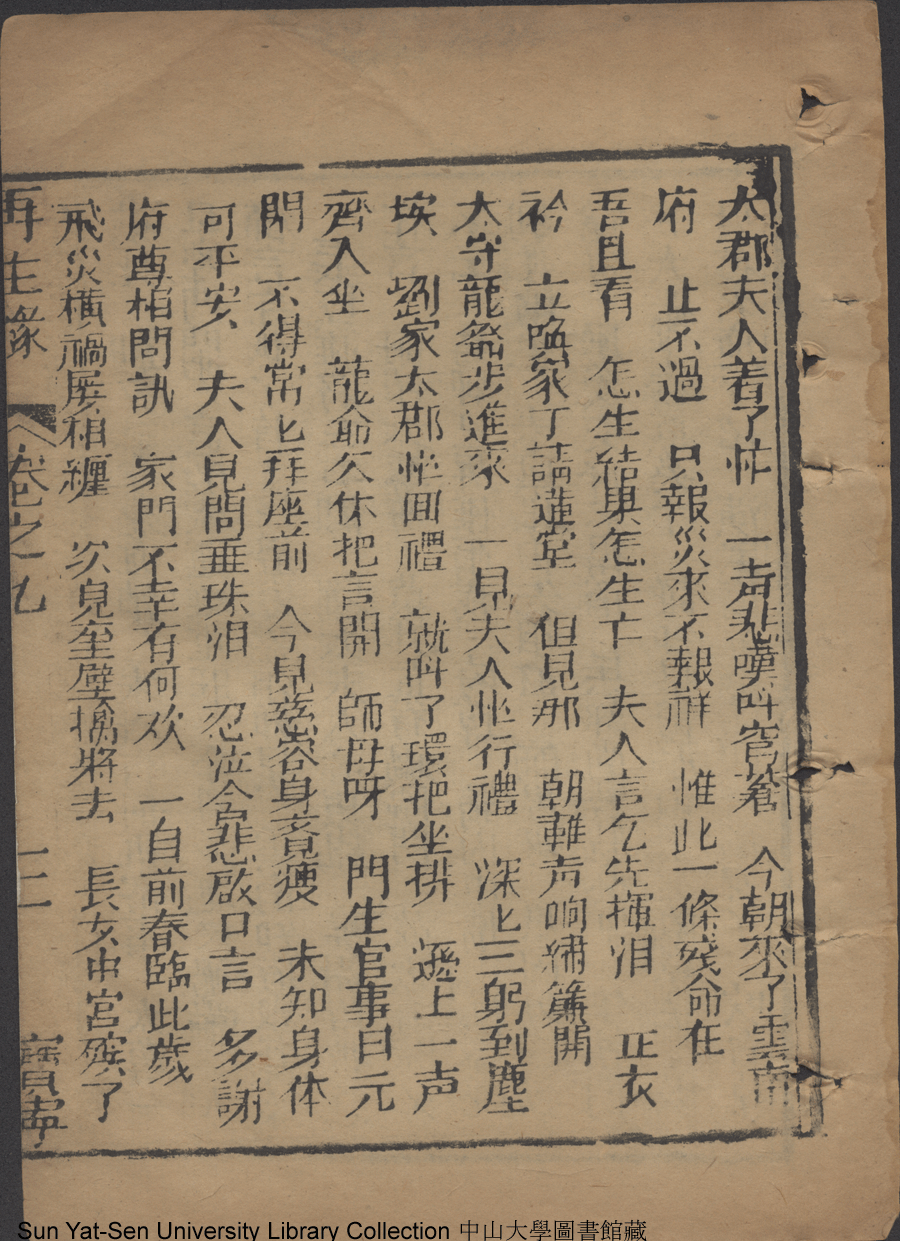 太郡夫人着了忙　一声悲嘆叫穹蒼　今朝來了雲南
府　止不過　只報災來不報祥　惟此一條殘命在
吾且看　怎生結果怎生亡　夫人言乞先揮泪　正衣
衿　立喚家丁請進堂　但見那　朝靴声响繡簾開
太守龍爺步進來　一見夫人忙行禮　深匕三躬到塵
埃　劉家太郡忙回禮　就叫了環把坐排　遜上一声
齊入坐　龍爺欠体把言開　師母呀　門生官事日元
閒　不得常匕拜座前　今見慈容身竟瘦　未知身体
可平安　夫人見問垂珠泪　忍泣含悲啟口言　多謝
府尊相問訊　家門不幸有何欢　一自前春臨此歲
飛災橫禍屡相纏　次兒奎璧擒將去　長女中宮殯了
再生緣　卷之九　二二　寶寧
Sun Yat-Sen University Library Collection 中山大學圖書館藏